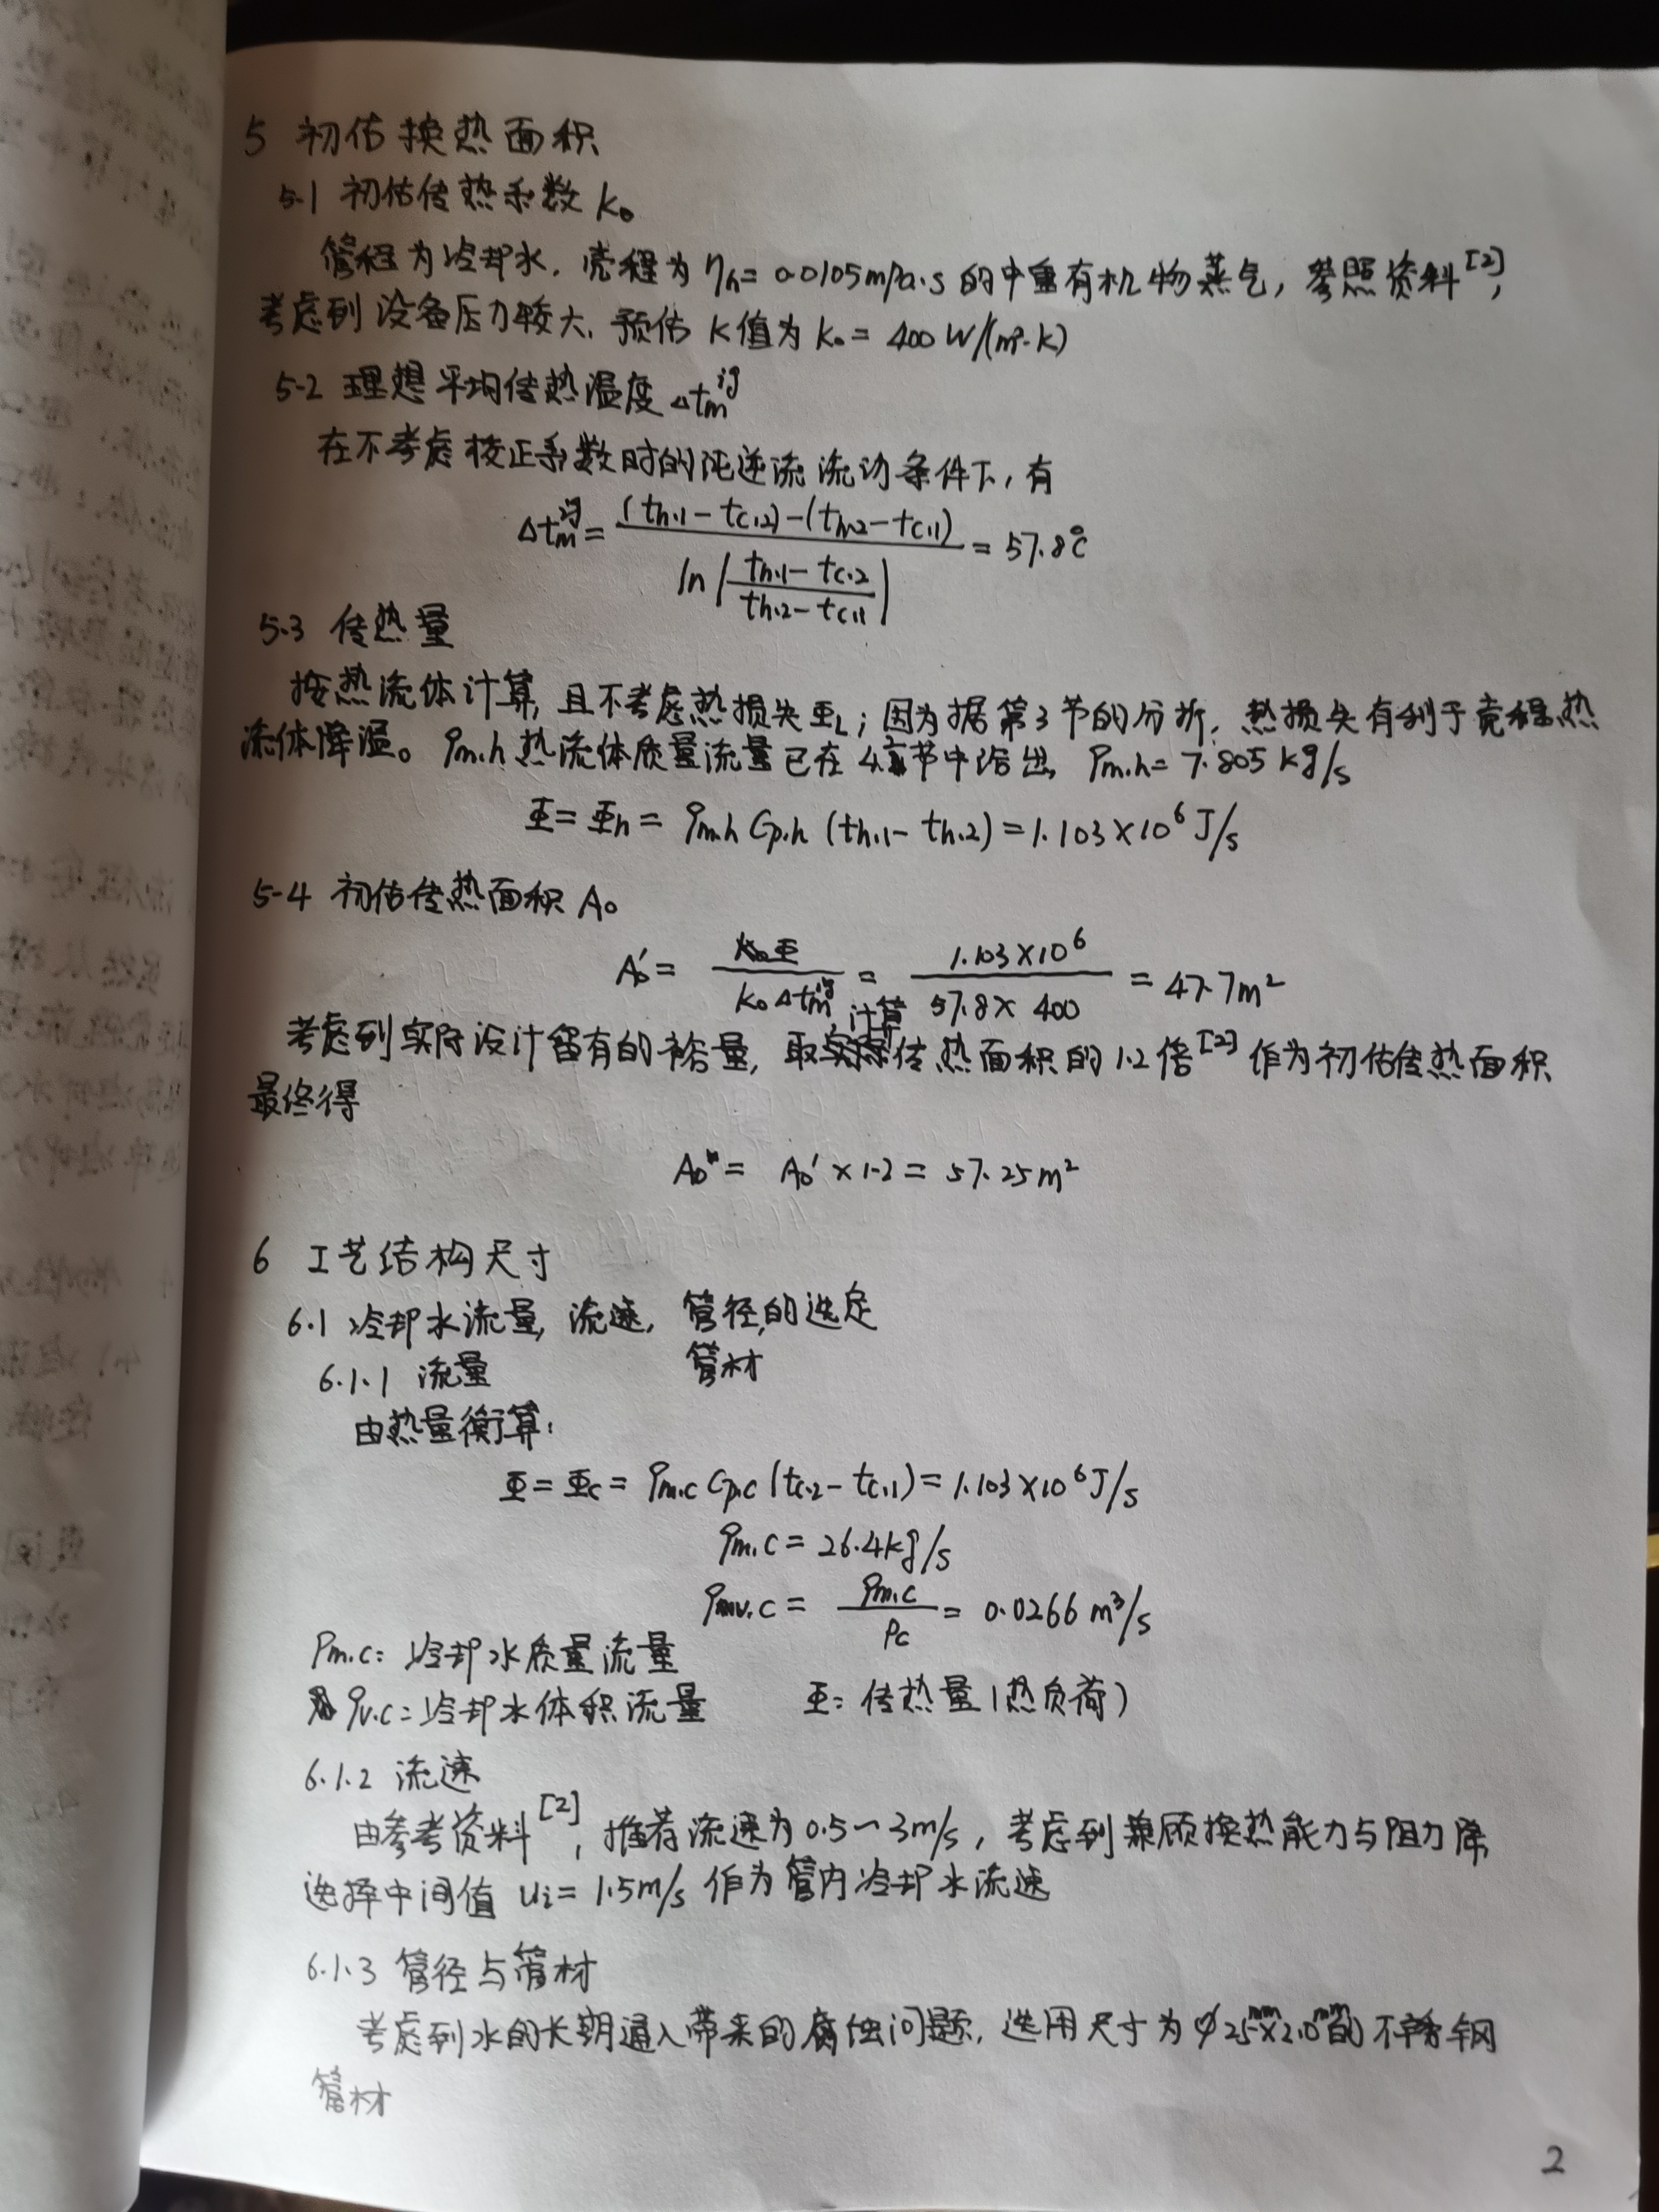 5 初估换热面积
5.1 初估传热系数 K₀
管程为冷却水，壳程为 ηh = 0.0105mPa·s 的中重有机物蒸气，参照资料[2]，
考虑到设备压力较大，预估 K值为 K₀ = 400 W/(m²·K)
5.2 理想平均传热温度 Δtm^ig
在不考虑校正系数时的纯逆流流动条件下，有
Δtm^ig = ((th.1 − tc.2) − (th.2 − tc.1)) / ln|(th.1 − tc.2)/(th.2 − tc.1)| = 57.8℃
5.3 传热量
按热流体计算，且不考虑热损失ΦL；因为据第3节的分析，热损失有利于壳程热
流体降温。qm.h热流体质量流量已在4节中给出，qm.h = 7.805 kg/s
Φ = Φh = qm.h Cp.h (th.1 − th.2) = 1.103×10⁶ J/s
5-4 初估传热面积 A₀
A₀′ = Φ / (K₀ Δtm^ig) = 1.103×10⁶ / (57.8×400) = 47.7m²
考虑到实际设计留有的裕量，取计算传热面积的1.2倍[2]作为初估传热面积
最终得
A₀″ = A₀′ × 1.2 = 57.25m²
6 工艺结构尺寸
6.1 冷却水流量，流速，管径，的选定
管材
6.1.1 流量
由热量衡算：
Φ = Φc = qm.c Cp.c (tc.2 − tc.1) = 1.103×10⁶ J/s
qm.c = 26.4kg/s
qmv.c = qm.c / ρc = 0.0266 m³/s
qm.c：冷却水质量流量
qv.c：冷却水体积流量 Φ：传热量（热负荷）
6.1.2 流速
由参考资料[2]，推荐流速为0.5～3m/s，考虑到兼顾换热能力与阻力降
选择中间值 ui = 1.5m/s 作为管内冷却水流速
6.1.3 管径与管材
考虑到水的长期通入带来的腐蚀问题，选用尺寸为φ25mm×2.0mm的不锈钢
管材
2